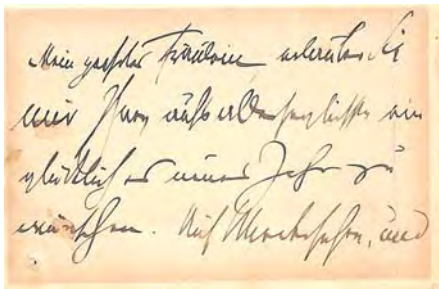 Mein geehrtes Fräulein, erlauben Sie
mir Ihnen aufs allerherzlichste ein
glückliches neues Jahr zu
wünschen. Auf Wiedersehen, und